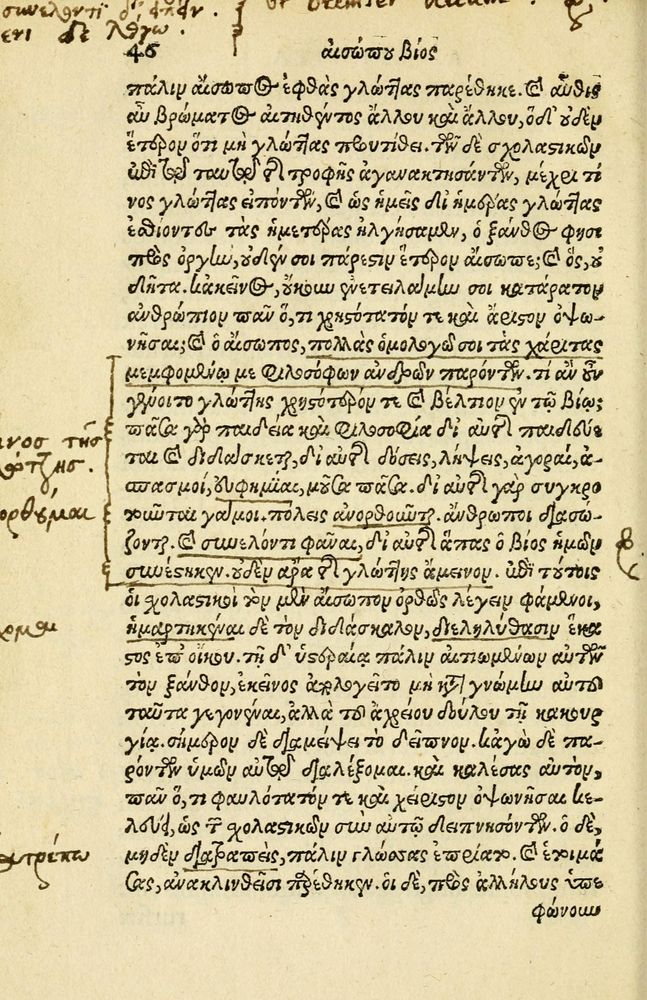 συνελόντι δὲ φάναι.
ενι δὲ λόγω.
46
αἰσώπου βίος
πάλιν αἴσωπος ἑφθὰς γλώττας παρέθηκε. καὶ αὖθις
αὖ βρώματος αἰτηθέντος ἄλλου καὶ ἄλλου, ὁ δ' οὐδὲν
ἕτερον ὅτι μὴ γλώττας προυτίθει. τῶν δὲ σχολαστικῶν
ἐπὶ τῷ ταυτῷ τῆς τροφῆς ἀγανακτησάντων, μέχρι τί
νος γλώττας εἰπόντων, καὶ ὡς ἡμεῖς δι' ἡμέρας γλώττας
ἐσθίοντες τὰς ἡμετέρας ἠλγήσαμεν, ὁ ξάνθος φησὶ
πρὸς ὀργὴν, οὐδέν σοι πάρεστιν ἕτερον αἴσωπε; καὶ ὃς, οὐ
δῆτα. κἀκεῖνος, οὔκουν ἐνετειλάμην σοι κατάρατον
ἀνθρώπιον πᾶν ὅ, τι χρηστότατόν τε καὶ ἄριστον ὀψω-
νῆσαι; καὶ ὁ αἴσωπος, πολλὰς ὁμολογῶ σοι τὰς χάριτας
μεμφομένῳ με φιλοσόφων ἀνδρῶν παρόντων. τί ἂν οὖν
γένοιτο γλώττης χρηστότερόν τε καὶ βέλτιον ἐν τῷ βίῳ;
πᾶσα γὰρ παιδεία καὶ φιλοσοφία δι' αὐτῆς παιδεύε
ται καὶ διδάσκεται, δι' αὐτῆς δόσεις, λήψεις, ἀγοραὶ, ἀ-
σπασμοὶ, εὐφημίαι, μοῦσα πᾶσα. δι' αὐτῆς γὰρ συγκρο
τοῦνται γάμοι. πόλεις ἀνορθοῦνται. ἄνθρωποι διασώ-
ζονται. καὶ συνελόντι φάναι, δι' αὐτῆς ἅπας ὁ βίος ἡμῶν
συνέστηκεν. οὐδὲν ἄρα τῆς γλώττης ἄμεινον. ἐπὶ τούτοις
οἱ σχολαστικοὶ τὸν μὲν αἴσωπον ὀρθῶς λέγειν φάμενοι,
ἡμαρτηκέναι δὲ τὸν διδάσκαλον, διεληλύθασιν ἕκα
στος ἐπ' οἴκου. τῇ δ' ὑστεραίᾳ πάλιν αἰτιωμένων αὐτῶν
τὸν ξάνθον, ἐκεῖνος ἀπελογεῖτο μὴ κατὰ γνώμην αὐτοῦ
ταῦτα γεγονέναι, ἀλλὰ τοῦ ἀχρείου δούλου τῇ κακουρ
γίᾳ. σήμερον δὲ διαμείψει τὸ δεῖπνον. κἀγὼ δὲ πα-
ρόντων ὑμῶν αὐτῷ διαλέξομαι. καὶ καλέσας αὐτὸν,
πᾶν ὅ, τι φαυλότατόν τε καὶ χείριστον ὀψωνῆσαι κε-
λεύει, ὡς τῶν σχολαστικῶν σὺν αὐτῷ δειπνησόντων. ὁ δὲ,
μηδὲν διατραπεὶς, πάλιν γλώσσας ἐπρίατο. καὶ ἑτοιμά
σας, ἀνακλιθεῖσι παρέθηκεν. οἱ δὲ, πρὸς ἀλλήλους ὑπε
φώνουν